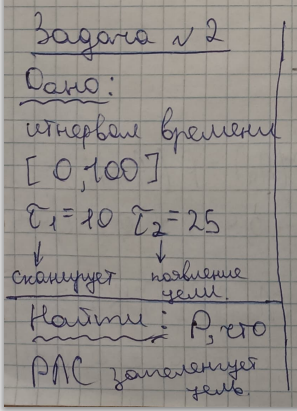 Задача № 2
Дано:
итнервал времени
[0,100]
τ₁=10 τ₂=25
↓ ↓
сканирует появление
цели.
Найти: P, что
РЛС запеленгует
цель.